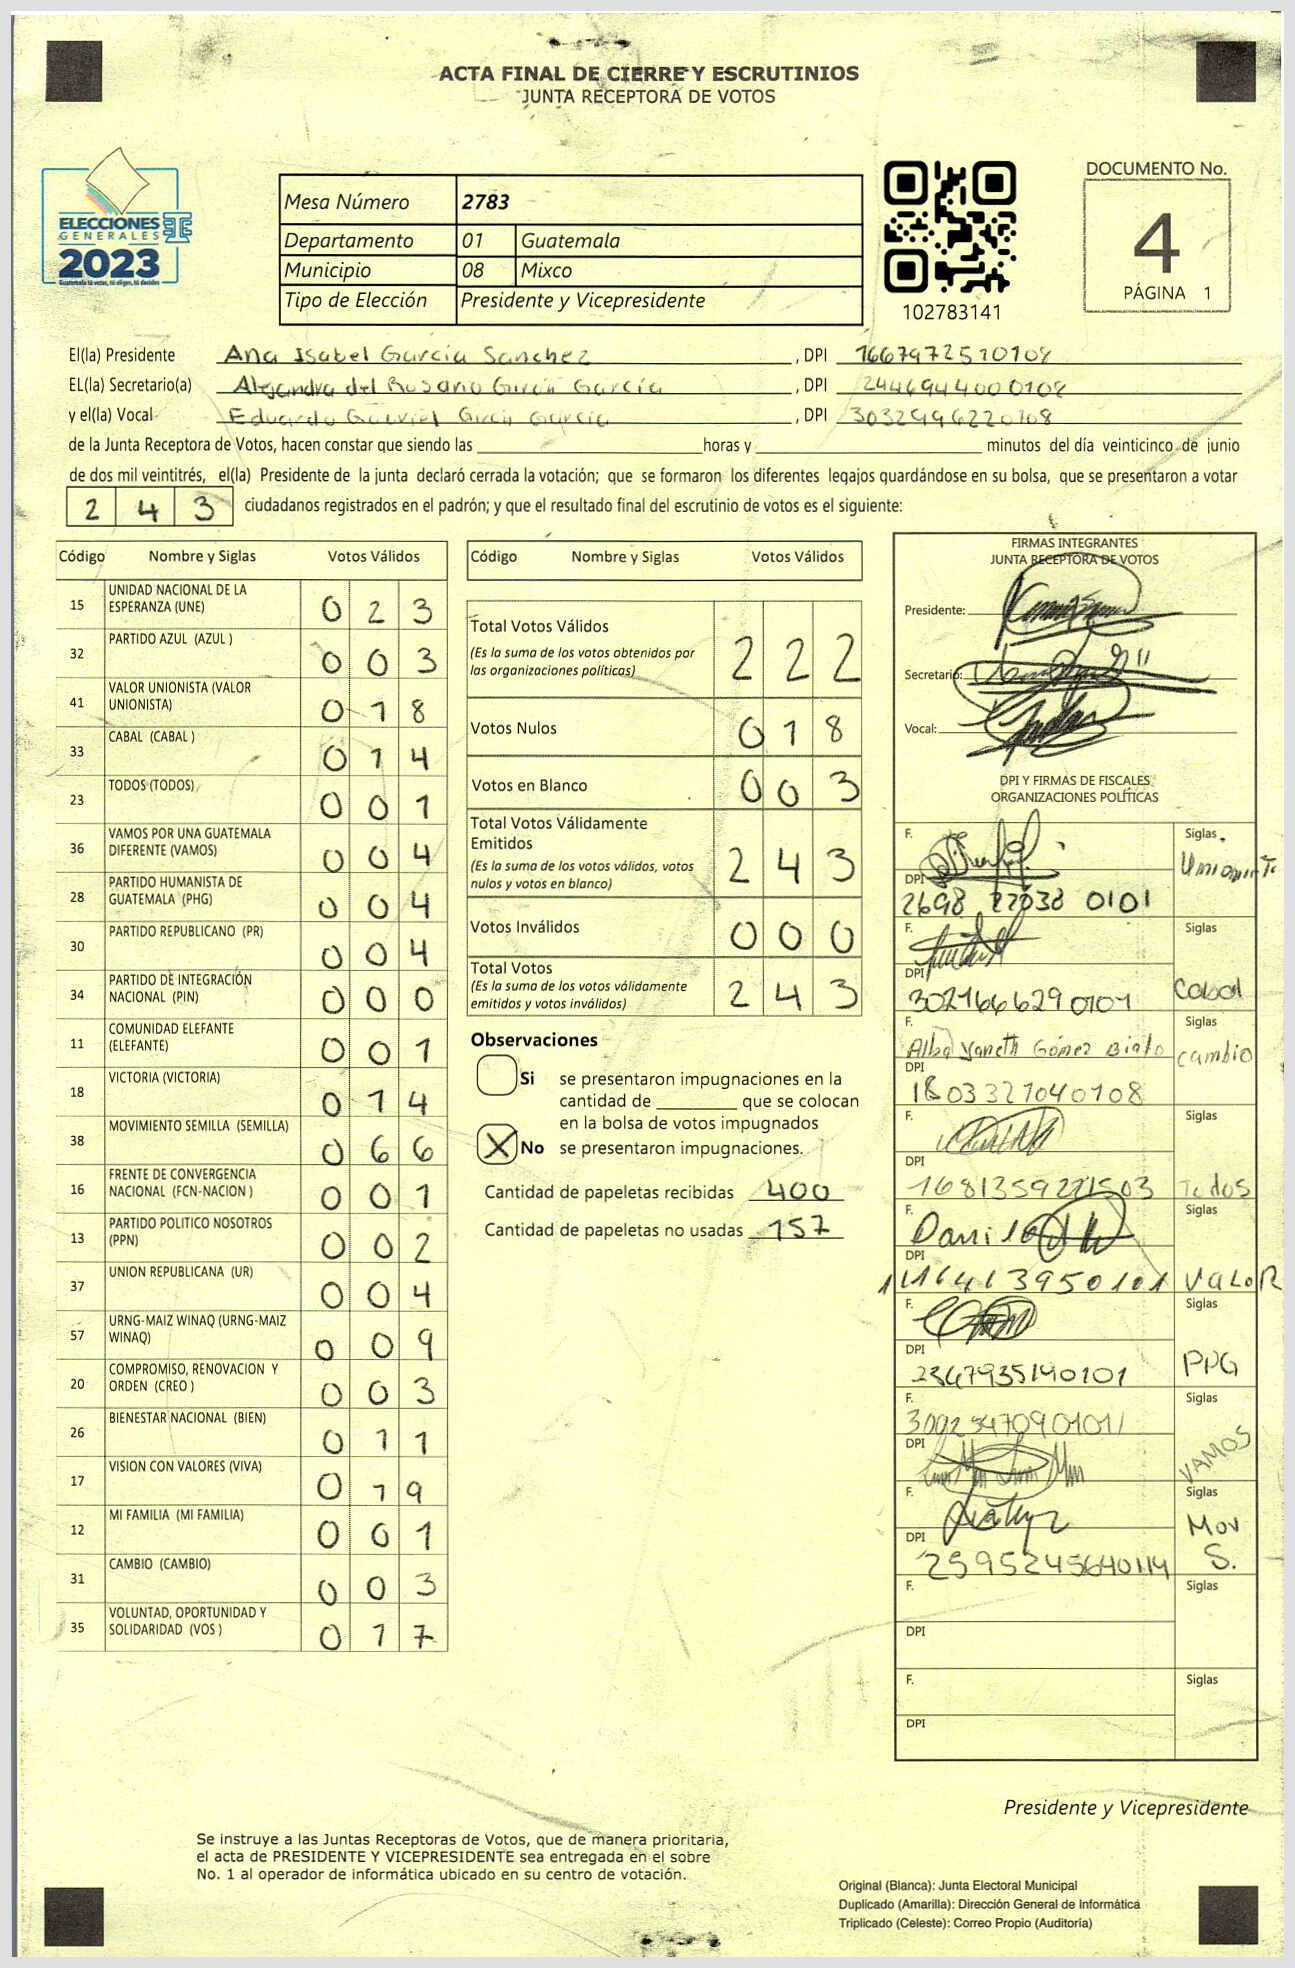 ACTA FINAL DE CIERRE Y ESCRUTINIOS
JUNTA RECEPTORA DE VOTOS
ELECCIONES
GENERALES
2023
Guatemala tú votas, tú eliges, tú decides
Mesa Número 2783
Departamento 01 Guatemala
Municipio 08 Mixco
Tipo de Elección Presidente y Vicepresidente
102783141
DOCUMENTO No.
4
PÁGINA 1
El(la) Presidente Ana Isabel García Sanchez, DPI 1667972570108
EL(la) Secretario(a) Alejandra del Rosario Girón García, DPI 2446944000108
y el(la) Vocal Eduardo Gabriel Girón García, DPI 3032996220108
de la Junta Receptora de Votos, hacen constar que siendo las horas y minutos del día veinticinco de junio
de dos mil veintitrés, el(la) Presidente de la junta declaró cerrada la votación; que se formaron los diferentes legajos quardándose en su bolsa, que se presentaron a votar
243 ciudadanos registrados en el padrón; y que el resultado final del escrutinio de votos es el siguiente:
Código Nombre y Siglas Votos Válidos
15 UNIDAD NACIONAL DE LA ESPERANZA (UNE) 023
32 PARTIDO AZUL (AZUL ) 003
41 VALOR UNIONISTA (VALOR UNIONISTA) 018
33 CABAL (CABAL ) 014
23 TODOS (TODOS) 001
36 VAMOS POR UNA GUATEMALA DIFERENTE (VAMOS) 004
28 PARTIDO HUMANISTA DE GUATEMALA (PHG) 004
30 PARTIDO REPUBLICANO (PR) 004
34 PARTIDO DE INTEGRACIÓN NACIONAL (PIN) 000
11 COMUNIDAD ELEFANTE (ELEFANTE) 001
18 VICTORIA (VICTORIA) 014
38 MOVIMIENTO SEMILLA (SEMILLA) 066
16 FRENTE DE CONVERGENCIA NACIONAL (FCN-NACION ) 001
13 PARTIDO POLITICO NOSOTROS (PPN) 002
37 UNION REPUBLICANA (UR) 004
57 URNG-MAIZ WINAQ (URNG-MAIZ WINAQ) 009
20 COMPROMISO, RENOVACION Y ORDEN (CREO ) 003
26 BIENESTAR NACIONAL (BIEN) 011
17 VISION CON VALORES (VIVA) 019
12 MI FAMILIA (MI FAMILIA) 001
31 CAMBIO (CAMBIO) 003
35 VOLUNTAD, OPORTUNIDAD Y SOLIDARIDAD (VOS ) 017
Código Nombre y Siglas Votos Válidos
Total Votos Válidos 222
(Es la suma de los votos obtenidos por
las organizaciones políticas)
Votos Nulos 018
Votos en Blanco 003
Total Votos Válidamente
Emitidos 243
(Es la suma de los votos válidos, votos
nulos y votos en blanco)
Votos Inválidos 000
Total Votos 243
(Es la suma de los votos válidamente
emitidos y votos inválidos)
Observaciones
Si se presentaron impugnaciones en la
cantidad de que se colocan
en la bolsa de votos impugnados
X No se presentaron impugnaciones.
Cantidad de papeletas recibidas 400
Cantidad de papeletas no usadas 157
FIRMAS INTEGRANTES
JUNTA RECEPTORA DE VOTOS
Presidente:
Secretario:
Vocal:
DPI Y FIRMAS DE FISCALES
ORGANIZACIONES POLÍTICAS
F. Siglas
Unionista
DPI
2698 22038 0101
F. Siglas
DPI
302166629 0101 Cabal
F. Siglas
Alba Yaneth Gómez cambio
DPI
1803327040108
F. Siglas
DPI
1681359221503 Todos
F. Siglas
Danilo
DPI
1116413950101 VALOR
F. Siglas
DPI
2367935140101 PPG
F. Siglas
3002547090101
DPI
VAMOS
F. Siglas
Mov
S.
DPI
2595245640114
F. Siglas
DPI
F. Siglas
DPI
Presidente y Vicepresidente
Se instruye a las Juntas Receptoras de Votos, que de manera prioritaria,
el acta de PRESIDENTE Y VICEPRESIDENTE sea entregada en el sobre
No. 1 al operador de informática ubicado en su centro de votación.
Original (Blanca): Junta Electoral Municipal
Duplicado (Amarilla): Dirección General de Informática
Triplicado (Celeste): Correo Propio (Auditoría)